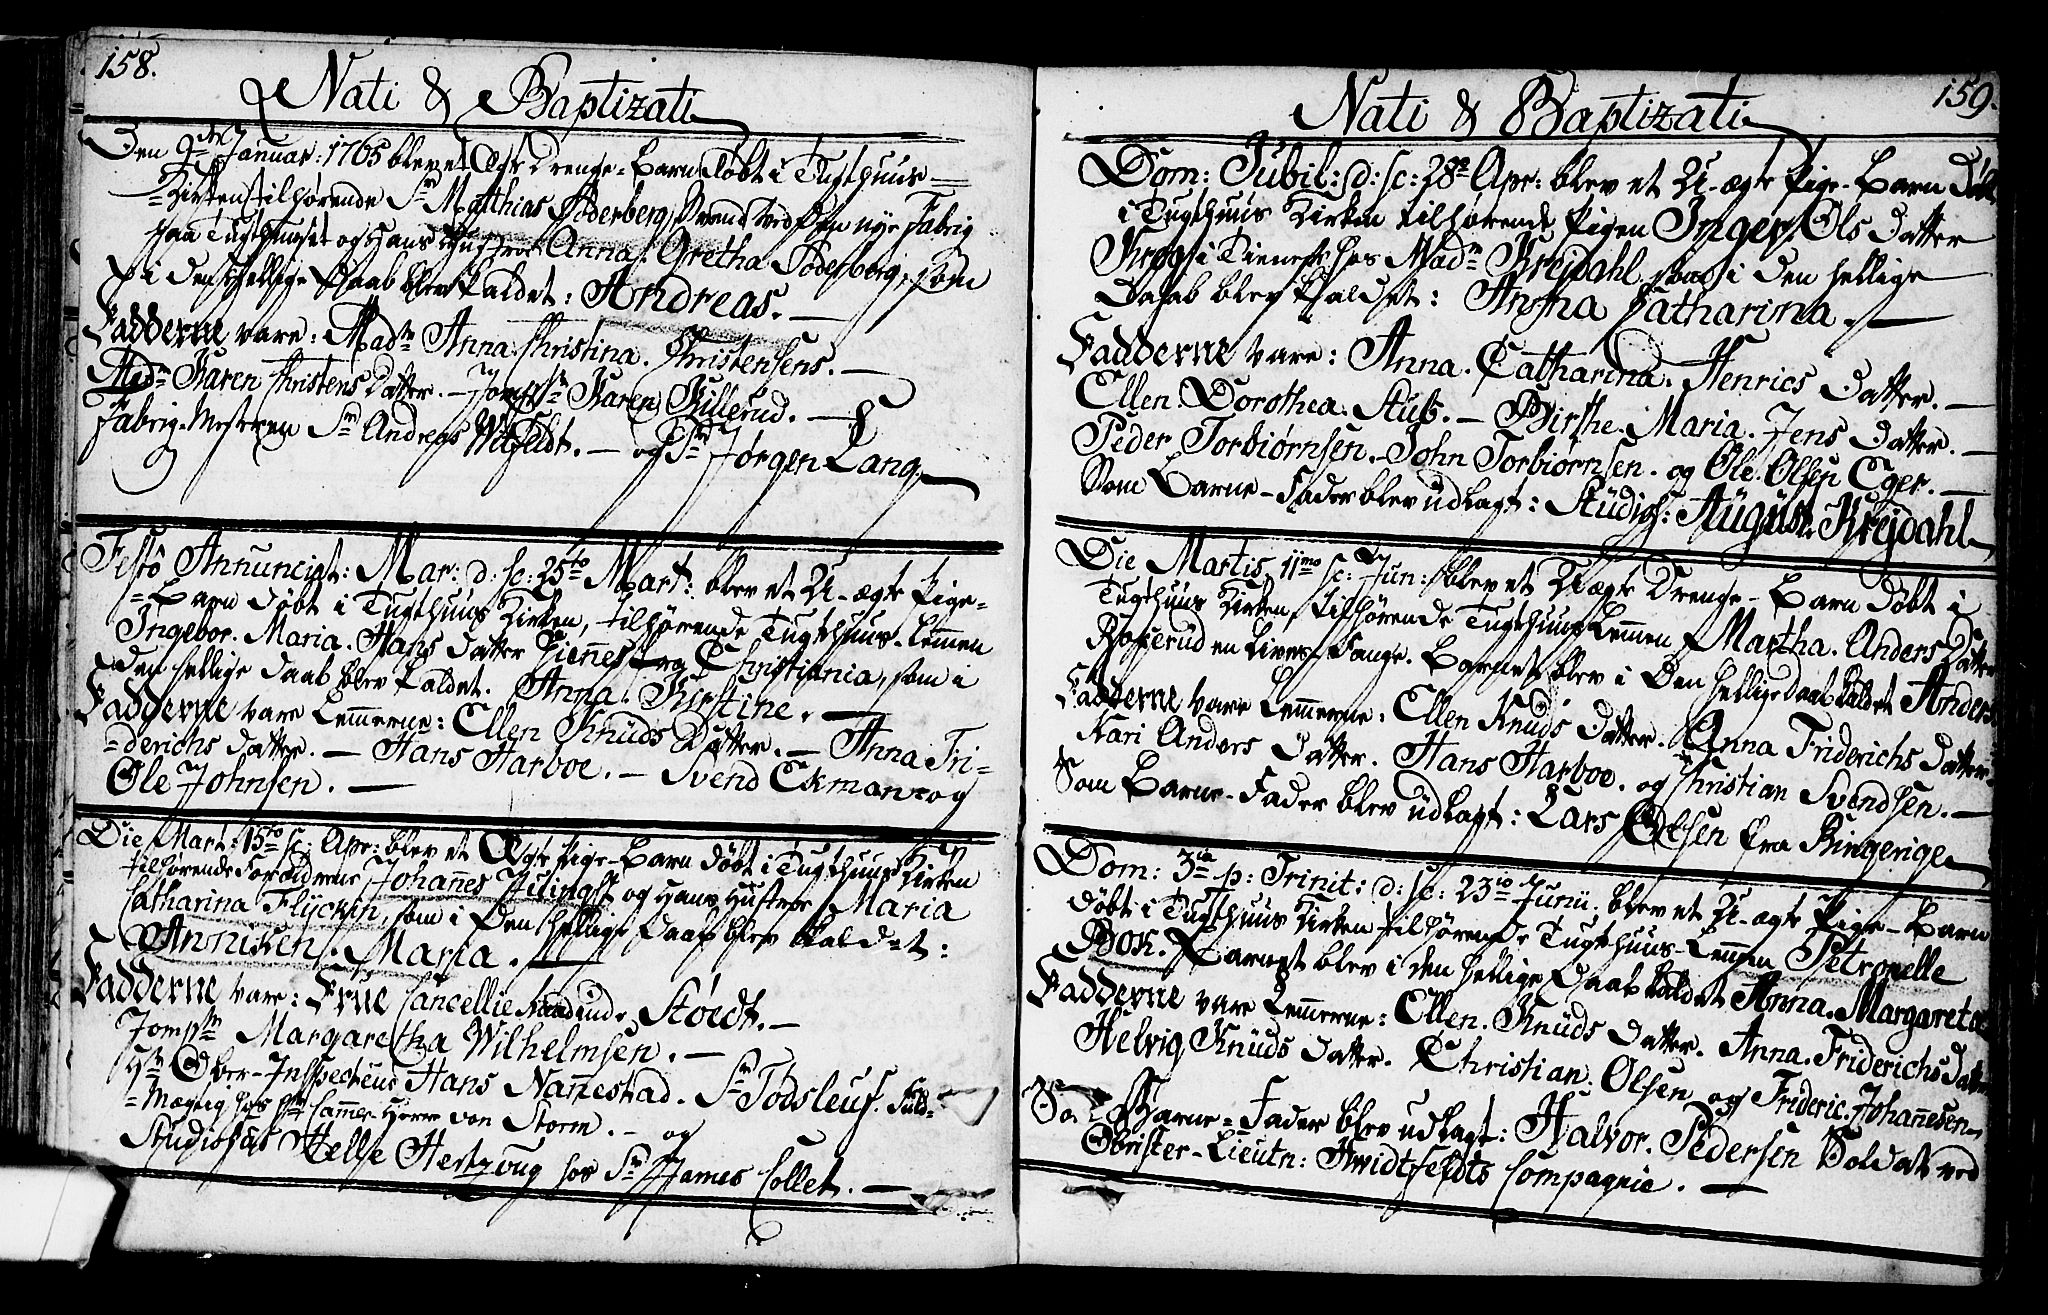 158.
Nati & Baptizati
Den 9de Januar: 1765 blev et Ægte Drenge-Barn døbt i Tugthuus-
Kirken tilhørende Sr Matthias Søderberg, Svend ved den nye Fabrig
paa Tugthuuset og Hans Hustroe Anna Gretha Søderberg, som
i den hellige Daab blev kaldet: Andreas.
Fadderne vare: Madm Anna Christina Christensens.
Madm Karen Christens Datter. Jomfr Karen Killerud.
Fabrig-Mesteren Sr Andreas Witfeldt. og Sr Jørgen Lang
Festo Annunciat: Mar: d: sc: 25to Mart: blev et U-ægte Pige-
Barn døbt i Tugthuus Kirken, tilhørende Tugthuus-Lemmen
Ingebor. Maria. Hans Datter fra Christiania, som i
den hellige Daab blev kaldet. Anna. Kirstine.
Fadderne vare Lemmerne: Ellen Knüds Datter. Anna Fri-
derichs Datter. Hans Harboe. Svend Ekman og
Ole Johnsen.
Die Mart: 15to sc: Apr: blev et Ægte Pige-Barn døbt i Tugthuus Kirken
tilhørende Forældrene Johannes og Hans Hustroe Maria
Catharina Flyckin, som i Den hellige Daab blev kaldet:
Anniken. Maria.
Fadderne vare: Frue Cancellie Raadinde Stoedt.
Jomfr Margaretha Wilhelmsen.
Hr Ober-Inspecteur Hans Nannestad. Sr Todsleuf. Fuld-
Mægtig hos Hr Cammer-Herre von Storm. og
Studiosus Helle Hertzoug hos Sr James Collet.
159.
Nati & Baptizati
Dom: Jubil: d: sc: 28de Apr: blev et U-ægte Pige-Barn Døbt
i Tugthuus Kirken tilhørende Pigen Inger Ols Datter
Krog i Tieneste hos Madm Krejdahl, som i den hellige
Daab blev kaldet: Anna Catharina.
Fadderne vare: Anna. Catharina. Henrics Datter.
Ellen. Dorothea. Stub. Birthe. Maria. Jens Datter.
Peder Torbiørnsen. John Torbiørnsen. og Ole Olsen Eger.
Som Barne-Fader blev udlagt: Studios: August. Krejdahl
Die Martis 11mo sc: Jun: blev et U-ægte Drenge-Barn døbt i
Tugthuus Kirken, tilhørende Tugthuus Lemmen Martha. Anders Datter
en Livs-Fange. Barnet blev i Den hellige Daab kaldet Anders
Fadderne vare Lemmerne: Ellen Knüds Datter. Anna Friderichs Datter.
Kari Anders Datter. Hans Harboe. og Christian Svendsen.
Som Barne-Fader blev udlagt: Lars Olsen fra Ringerige
Dom: 3ia p: Trinit: d: sc: 23io Junii blev et U-ægte Pige-Barn
døbt i Tugthuus Kirken tilhørende Tugthuus-Lemmen Petronelle
Bok. Barnet blev i den hellige Daab kaldet Anna. Margareta
Fadderne vare Lemmerne: Ellen. Knüds Datter. Anna. Friderichs Datter
Helvig Knüds Datter. Christian. Olsen og Frideric. Johannesen
Som Barne-Fader blev udlagt: Halvor. Pedersen Soldat ved
Obrister-Lieutn: Hwidtfeldts Compagnie.